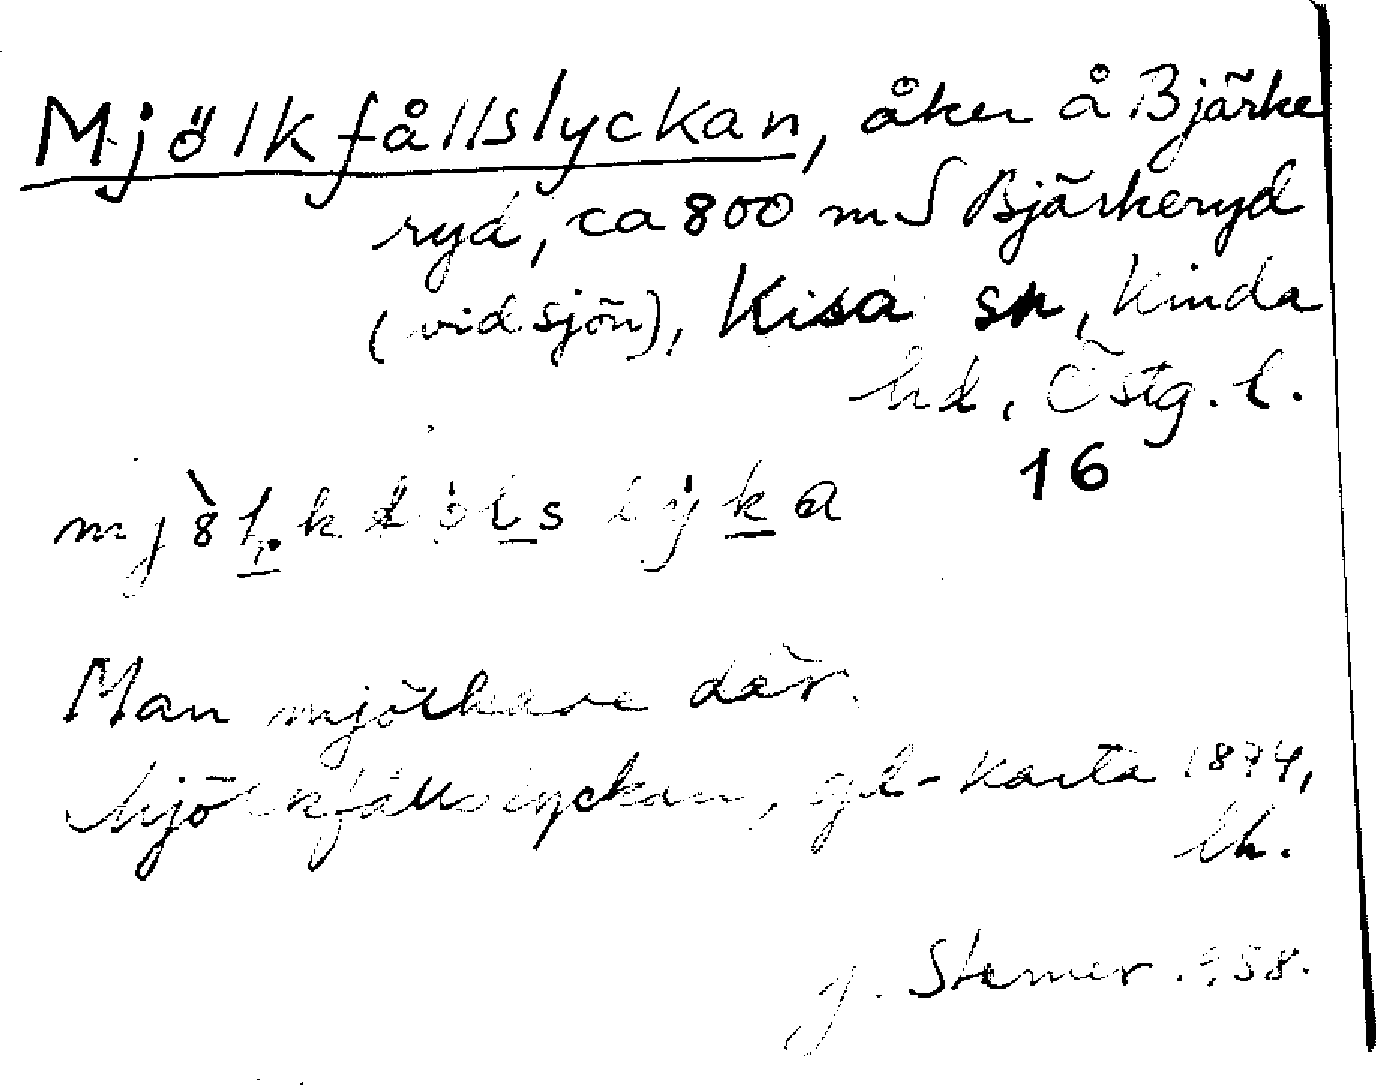 Mjölkfållslyckan, åker å Bjärke
ryd, ca 800 m S Bjärkeryd
(vid sjön), Kisa sn, Kinda
hd, Östg. l.
16
Man mjölkade där.
Mjölkfållslyckan, gl-karta 1874,
lh.
J. Stamer